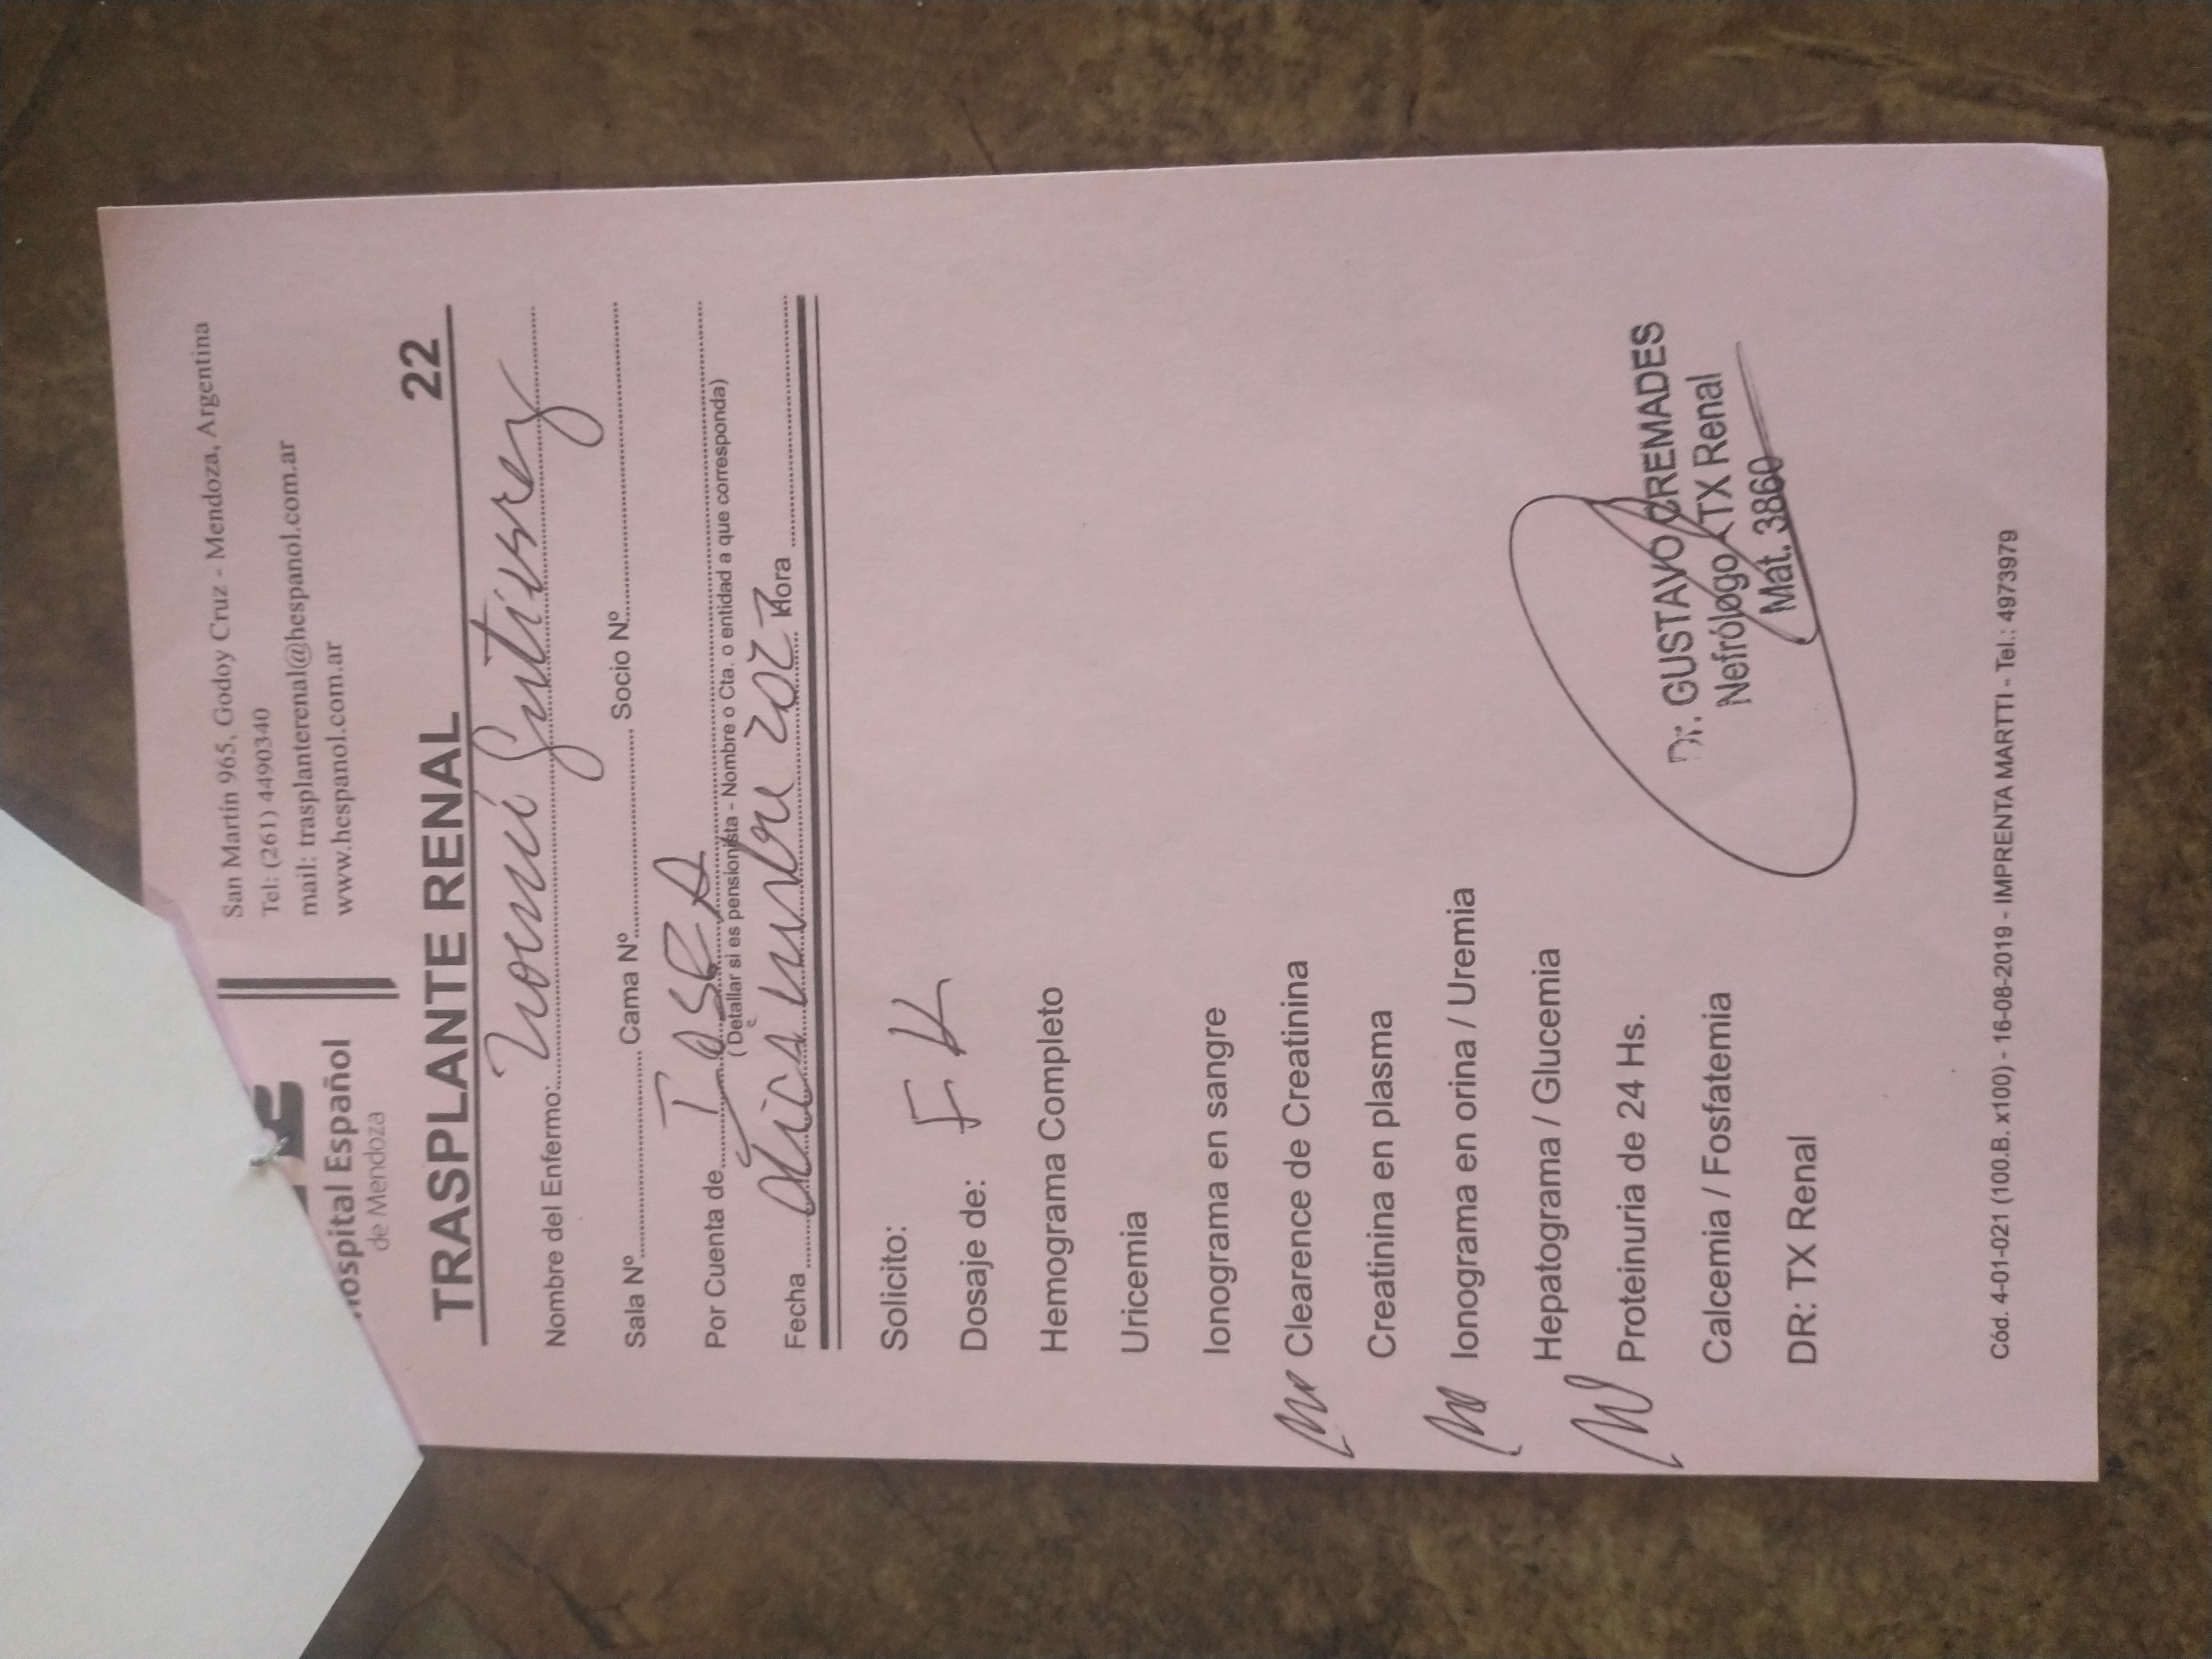 San Martín 965, Godoy Cruz - Mendoza, Argentina
Tel: (261) 4490340
mail: trasplanterenal@hespanol.com.ar
www.hespanol.com.ar
Hospital Español
de Mendoza
TRASPLANTE RENAL 22
Nombre del Enfermo: Noemí Gutierrez
Sala Nº Cama Nº Socio Nº
Por Cuenta de IOSEA
( Detallar si es pensionista - Nombre o Cta. o entidad a que corresponda)
Fecha diciembre 2022 Hora
Solicito:
Dosaje de: FK
Hemograma Completo
Uricemia
Ionograma en sangre
no Clearence de Creatinina
Creatinina en plasma
no Ionograma en orina / Uremia
Hepatograma / Glucemia
no Proteinuria de 24 Hs.
Calcemia / Fosfatemia
DR: TX Renal
Dr. GUSTAVO CREMADES
Nefrólogo - TX Renal
Mat. 3860
Cód. 4-01-021 (100.B. x100) - 16-08-2019 - IMPRENTA MARTTI - Tel.: 4973979